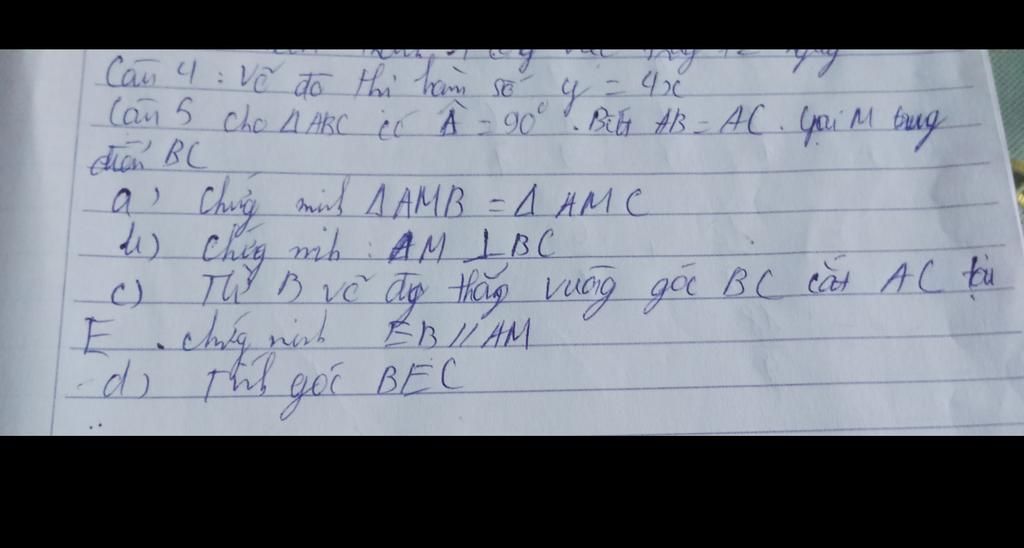 Câu 4 : Vẽ đồ thị hàm số y = 4x
Câu 5 cho ΔABC có Â = 90° . Biết AB = AC . Gọi M trung
điểm BC
a) Chứng minh ΔAMB = ΔAMC
b) Chứng minh : AM ⊥ BC
c) Từ B vẽ đg thẳng vuông góc BC cắt AC tại
E . chứng minh EB // AM
d) Tính góc BEC